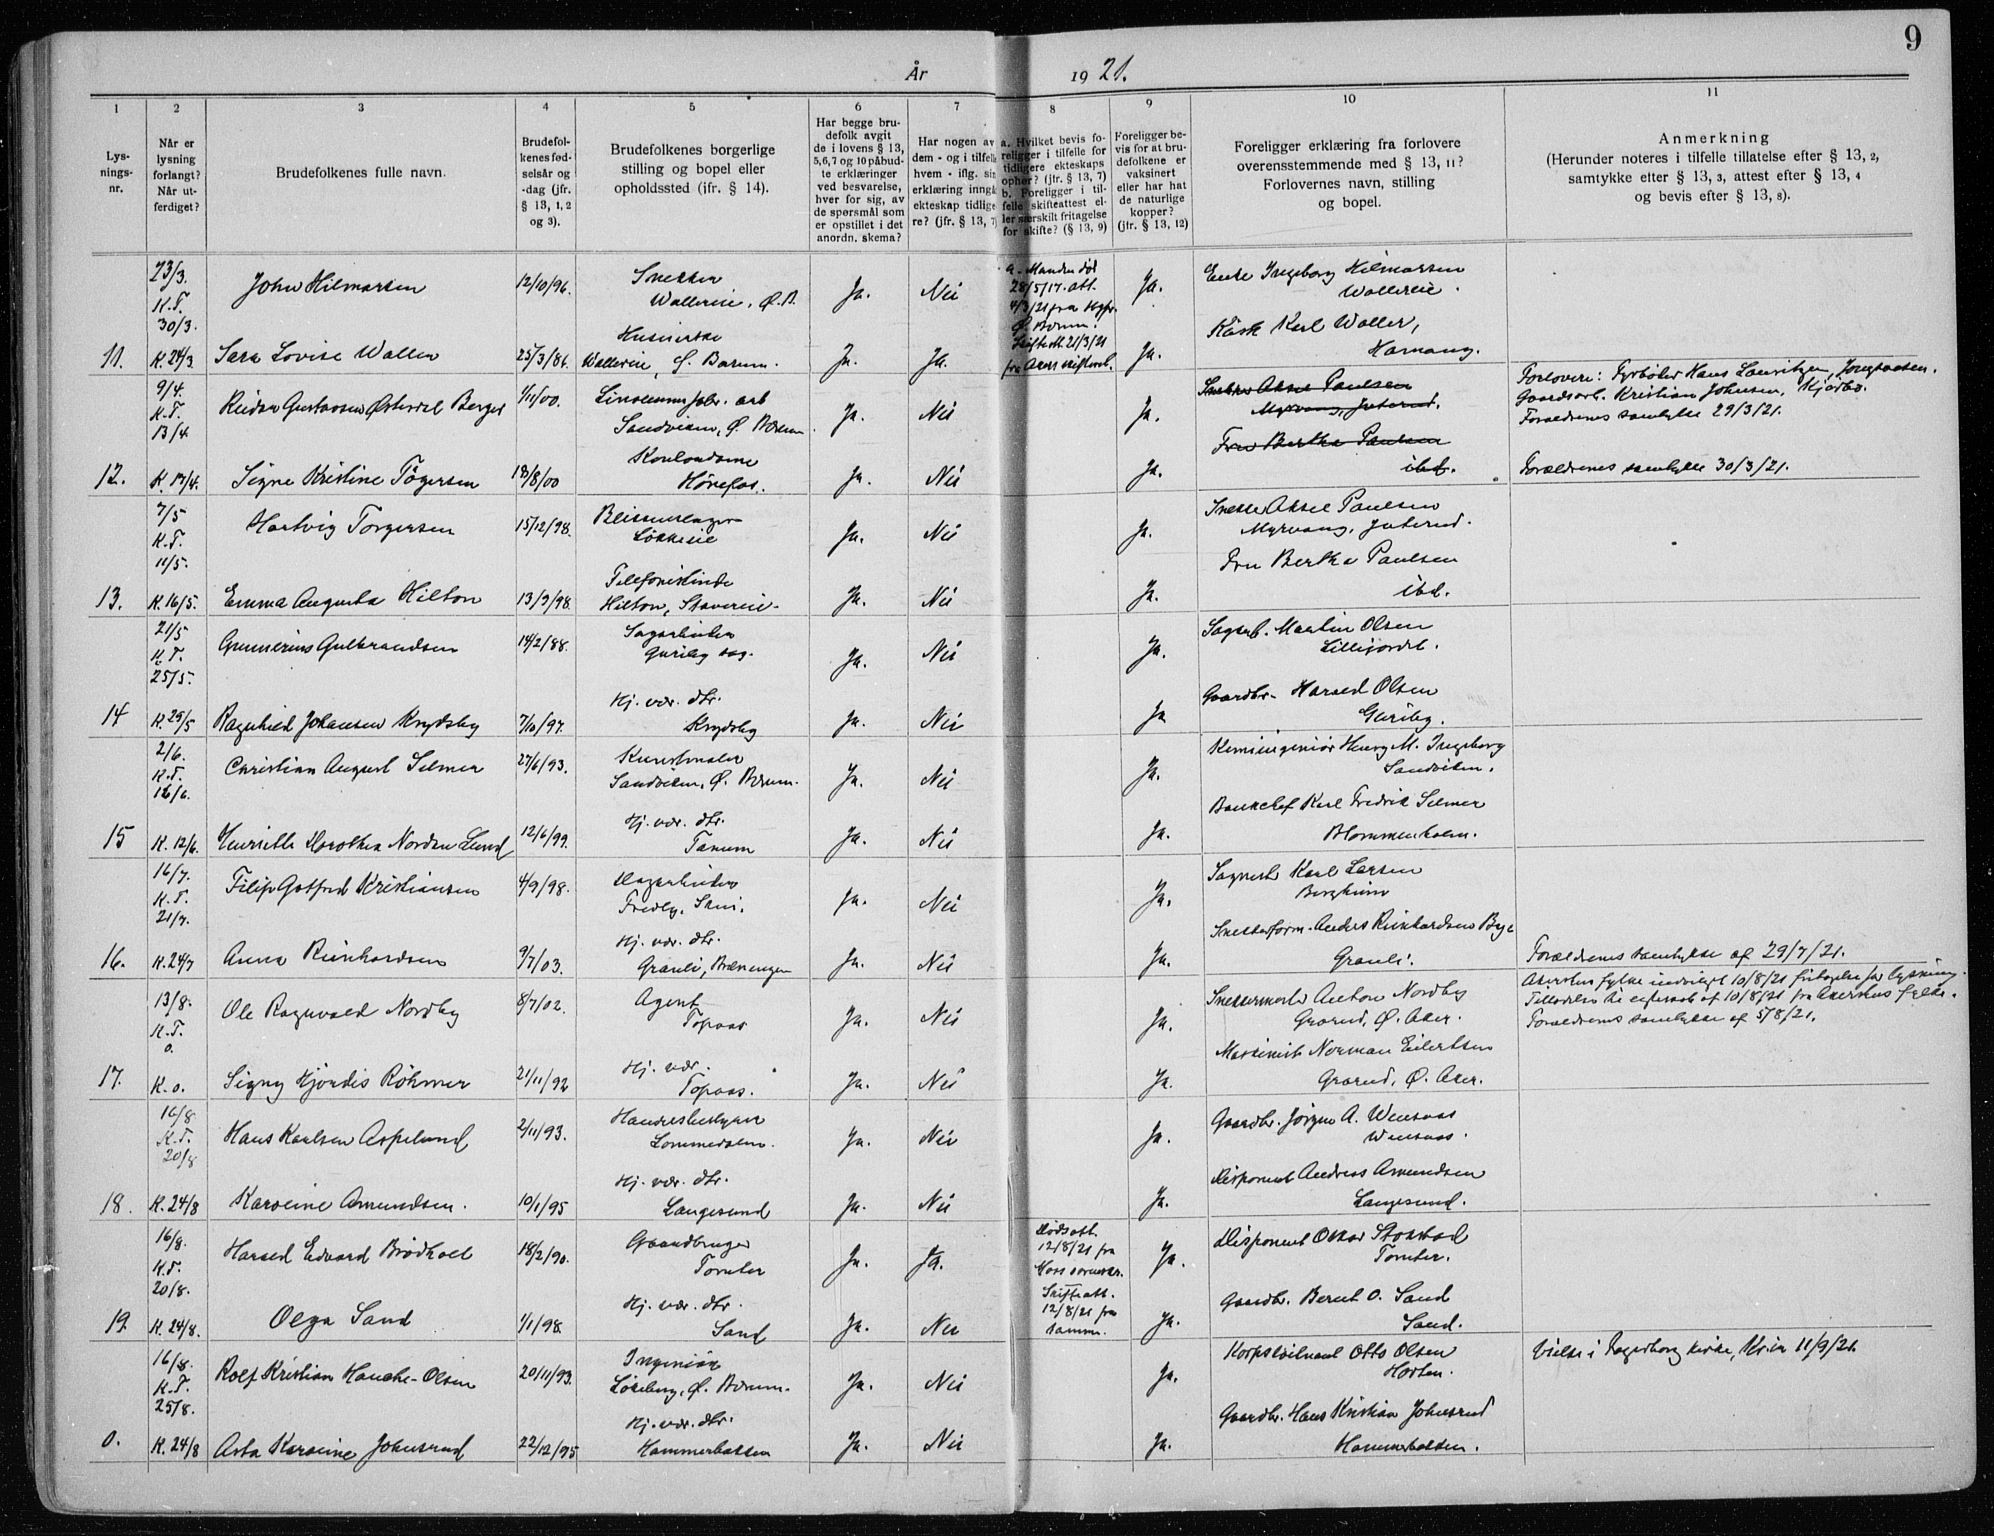 9
År 1921.
1
2
3
4
5
6
7
8
9
10
11
Lys-
nings-
nr.
Når er
lysning
forlangt?
Når ut-
ferdiget?
Brudefolkenes fulle navn.
Brudefol-
kenes fød-
selsår og
-dag (jfr.
§ 13, 1, 2
og 3).
Brudefolkenes borgerlige
stilling og bopel eller
opholdssted (jfr. § 14).
Har begge bru-
defolk avgit
de i lovens § 13,
5, 6, 7 og 10 påbud-
te erklæringer
ved besvarelse,
hver for sig, av
de spørsmål som
er opstillet i det
anordn. skema?
Har nogen av
dem - og i tilfelle
hvem - iflg. sin
erklæring inngå
ekteskap tidlige
re? (jfr. § 13, 7)
a. Hvilket bevis fo-
religger i tilfelle for
tidligere ekteskaps
ophør? (jfr. § 13, 7)
b. Foreligger i til-
felle skifteattest el-
ler særskilt fritagelse
for skifte? (§ 13, 9)
Foreligger be-
vis for at bru-
defolkene er
vaksinert
eller har hat
de naturlige
kopper?
(jfr. § 13, 12)
Foreligger erklæring fra forlovere
overensstemmende med § 13, 11?
Forlovernes navn, stilling
og bopel.
Anmerkning
(Herunder noteres i tilfelle tillatelse efter § 13, 2,
samtykke efter § 13, 3, attest efter § 13, 4
og bevis efter § 13, 8).
23/3.
K.T.
30/3.
John Hilmarsen
12/10/96.
Snekker
Wallereie, Ø. B.
Ja.
Nei
a. Manden død
28/5/17. att.
4/3/21 fra Sogpr.
Ø. Bærum.
Skifteatt. 21/3/21
fra Akers skifteret.
Ja.
Enke Ingeborg Hilmarsen
Wallereie.
11.
K. 24/3.
Sara Lovise Waller
25/3/86.
Husierske
Wallereie, Ø. Bærum.
Ja.
Ja.
Ja.
Karl Waller,
Hamang.
9/4.
K.T.
13/4.
Reidar Gustavsen Østerdal Berger
1/11/00.
arb
Sandviken, Ø. Bærum.
Ja.
Nei
Ja.
Snekker Aksel Paulsen
Myrvang, Juterud.
Forlovere: Fyrbøter Hans Lauritzen, Jongsaasen.
Gaardsarb. Kristian Johnsen, Kjørbo.
Foreldrenes samtykke 29/3/21.
12.
K. 17/4.
Signe Kristine Tøgersen
18/8/00
Kontordame
Hønefos.
Ja.
Nei
Ja.
Fru Bertha Paulsen
ibd.
Foreldrenes samtykke 30/3/21.
7/5
K.T.
11/5.
Hartvig Torgersen
15/12/98.
Løkkeeie
Ja.
Nei
Ja.
Snekker Aksel Paulsen
Myrvang, Juterud.
13.
K. 16/5.
Emma Augusta Hilton
13/9/98.
Telefonistinde
Hilton, Stavereie.
Ja.
Nei
Ja.
Fru Bertha Paulsen
ibd.
21/5
K.T.
25/5.
Gunnerius Gulbrandsen
14/2/88.
Sagarbeider
Guriby sag.
Ja.
Nei
Ja.
Sagarb. Martin Olsen
Lillijordet.
14
K. 29/5
Ragnhild Johansen Krydsby
7/10/97.
Hj. vær. dtr.
Krydsby
Ja.
Nei
Ja
Gaardbr. Harald Olsen
Guriby.
2/6.
K.T.
12/6.
Christian August Selmer
27/6/93.
Kunstmaler
Sandviken, Ø. Bærum.
Ja.
Nei
Ja.
Kemiingeniør Henry M. Ingeborg
Sandviken.
15
K. 12/6.
Henriette Dorothea Norden Lund
12/6/99.
Hj. vær. dtr.
Tanum
Ja.
Nei
Ja.
Bankchef Karl Fredrik Selmer
Blommenholm.
16/7.
K.T.
21/7.
Filip Gotfred Kristiansen
4/9/98.
Sagarbeider
Ja.
Nei
Ja.
Sagmest. Karl Larsen
Bergheim
16.
K. 24/7
Anna Reinhardsen
9/7/03.
Hj. vær. dtr.
Granli, Bærungen
Ja.
Nei
Ja.
Snekkerform. Anders Reinhardsen Bye
Granli.
Foreldrenes samtykke af 29/7/21.
13/8.
K.T.
0.
Ole Ragnvald Nordby
8/7/02.
Agent
Topaas
Ja.
Nei
Ja.
Snekkermester Anton Nordby
Grorud, Ø. Aker.
Akershus fylke indvilget 10/8/21 fritagelse for lysning.
Tilladelse til egteskab af 10/8/21 fra Akershus fylke.
Foreldrenes samtykke af 5/8/21.
17.
K. 0.
Signy Hjördis Röhmer
21/11/92
Hj. vær.
Topaas.
Ja.
Nei
Ja.
Maskinist Norman Eilertsen
Grorud, Ø. Aker.
16/8
K.T.
20/8
Hans Karlsen Aspelund
2/11/93.
Handelsbestyrer
Lommedalen.
Ja.
Nei
Ja.
Gaardbr. Jørgen A. Wensaas
Wensaas.
18.
K. 24/8
Karoline Amundsen.
10/1/95
Hj. vær. dtr.
Langesund
Ja.
Nei
Ja.
Disponent Andreas Amundsen
Langesund.
16/8.
K.T.
20/8.
Harald Edvard Brødholt
18/2/90.
Gaardbruger
Tomter
Ja.
Ja.
Dødsatt.
12/8/21 fra
Moss sorenskr.
Skifteatt.
12/8/21 fra
samme.
Ja.
Disponent Oskar Stokstad
Tomter.
19.
K. 24/8.
Olga Sand
1/1/98.
Hj. vær. dtr.
Sand
Ja.
Nei
Ja.
Gaardbr. Bernt O. Sand
Sand.
16/8.
K.T.
25/8.
Rolf Kristian Hauche-Olsen
20/11/93.
Ingeniør
Løkeberg, Ø. Bærum.
Ja.
Nei
Ja.
Korpsløitnant Otto Olsen
Horten.
Vielse i Fagerborg kirke, Kr.ia 11/9/21.
0.
K. 24/8
Asta Karoline Johnsrud
22/12/95
Hj. vær. dtr.
Hammerbakken
Ja.
Nei
Ja.
Gaardbr. Hans Kristian Johnsrud
Hammerbakken.